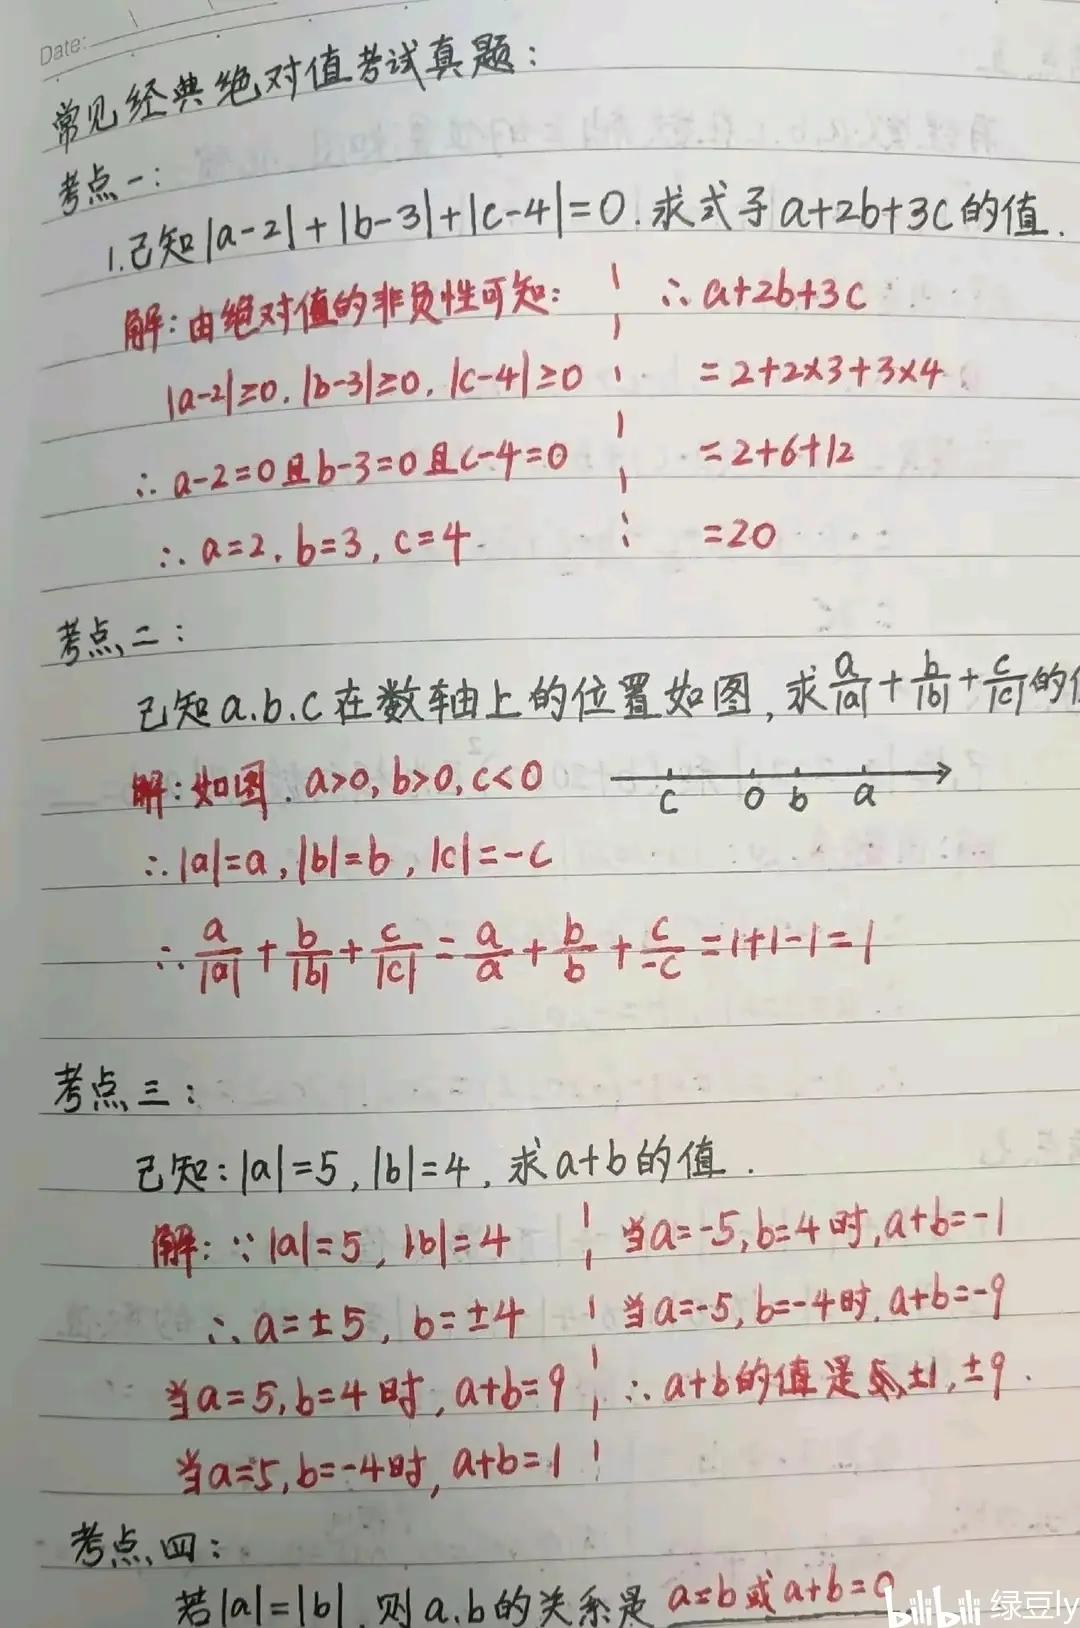 Date:
常见经典绝对值考试真题:
考点一:
1.已知|a-2|+|b-3|+|c-4|=0.求式子a+2b+3c的值.
解:由绝对值的非负性可知:
|a-2|≥0,|b-3|≥0,|c-4|≥0
∴a-2=0且b-3=0且c-4=0
∴a=2,b=3,c=4.
∴a+2b+3c
=2+2×3+3×4
=2+6+12
=20
考点二:
已知a.b.c在数轴上的位置如图,求a/|a|+b/|b|+c/|c|的
解:如图.a>0,b>0,c<0
c 0 b a
∴|a|=a,|b|=b,|c|=-c
∴a/|a|+b/|b|+c/|c|=a/a+b/b+c/-c=1+1-1=1
考点三:
已知:|a|=5,|b|=4,求a+b的值.
解:∵|a|=5,|b|=4
∴a=±5,b=±4
当a=5,b=4时,a+b=9
当a=5,b=-4时,a+b=1
当a=-5,b=4时,a+b=-1
当a=-5,b=-4时,a+b=-9
∴a+b的值是±1,±9.
考点四:
若|a|=|b|,则a.b的关系是a=b或a+b=0
bilibili 绿豆ly